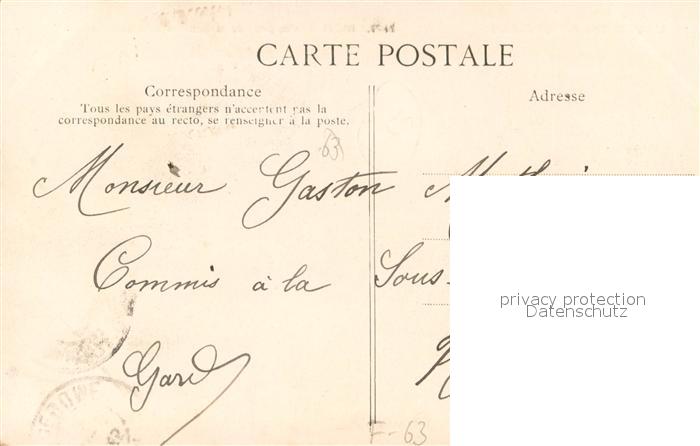 CARTE POSTALE
Correspondance
Tous les pays étrangers n'acceptent pas la
correspondance au recto, se renseigner à la poste.
Adresse
63
Monsieur Gaston
Commis à la Sous-
Gard
F-63
privacy protection
Datenschutz